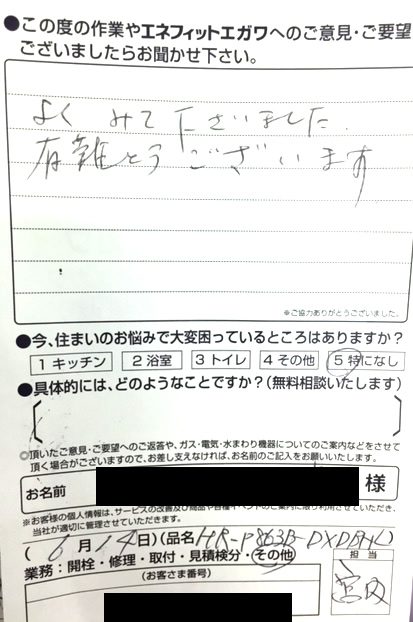 ●この度の作業やエネフィットエガワへのご意見・ご要望
ございましたらお聞かせ下さい。
よく みて下さいました.
有難とうございます
※ご協力ありがとうございました。
●今、住まいのお悩みで大変困っているところはありますか?
1 キッチン 2 浴室 3 トイレ 4 その他 5 特になし
●具体的には、どのようなことですか?(無料相談いたします)
◎頂いたご意見・ご要望へのご返答や、ガス・電気・水まわり機器についてのご案内などをさせて
頂く場合がございますので、お差し支えなければ、お名前のご記入をお願いいたします。
お名前 様
※お客様の個人情報は、サービスの改善及び商品や各種イベントのご案内に限り利用させていただき、
当社が適切に管理させていただきます。
(6月14日)(品名 HR-P863B-
業務:開栓・修理・取付・見積検分・その他
(お客さま番号)
担当
宮内